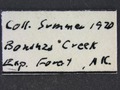 Coll. Summer 1970
Bonanza Creek
Exp. Forest, AK.